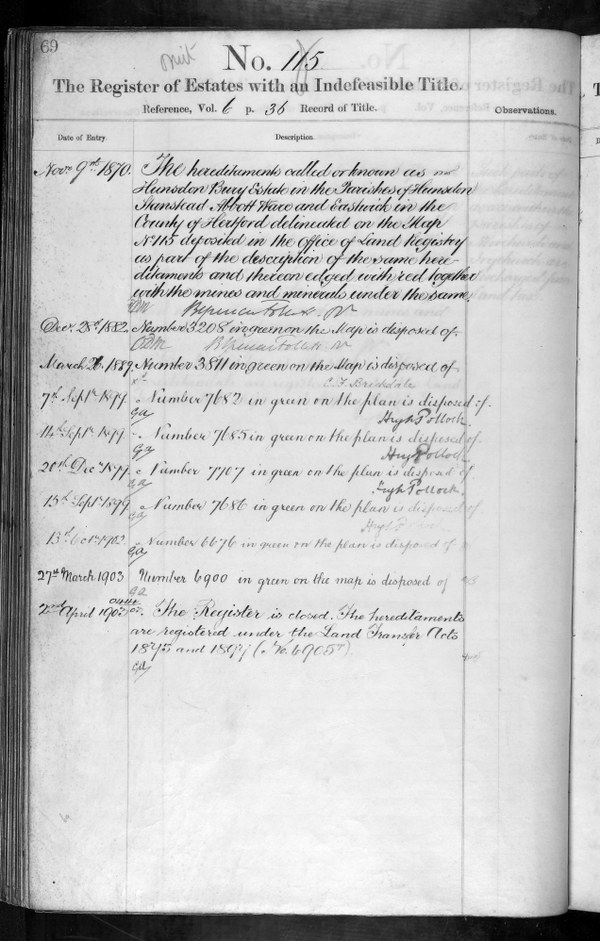 69
omit
No. 115
The Register of Estates with an Indefeasible Title.
Reference, Vol. 6 p. 36 Record of Title.
Observations.
Date of Entry.
Description.
Novr. 9th 1870. The hereditaments called or known as
Hunsdon Bury Estate in the Parishes of Hunsdon
Stanstead Abbott Ware and Eastwick in the
County of Hertford delineated on the Map
No 115 deposited in the Office of Land Registry
as part of the description of the same here-
ditaments and thereon edged with red together
with the mines and minerals under the same.
Decr. 28th 1882. Number 3208 in green on the Map is disposed of.
March 26. 1889. Number 3811 in green on the Map is disposed of
C. F. Brickdale
7th Septr. 1899. Number 7682 in green on the plan is disposed of.
ga
Hugh Pollock.
14th Septr. 1899. Number 7685 in green on the plan is disposed of.
ga
Hugh Pollock.
20th Decr. 1899. Number 7707 in green on the plan is disposed of
ga
Hugh Pollock.
15th Septr. 1899. Number 7686 in green on the plan is disposed of.
ga
Hugh Pollock
13th Octr. 1902. Number 6676 in green on the plan is disposed of
ga
27th March 1903 Number 6900 in green on the map is disposed of
ga
2nd April 1903. The Register is closed. The hereditaments
are registered under the Land Transfer Acts
1875 and 1897 (No. 6905)
ga